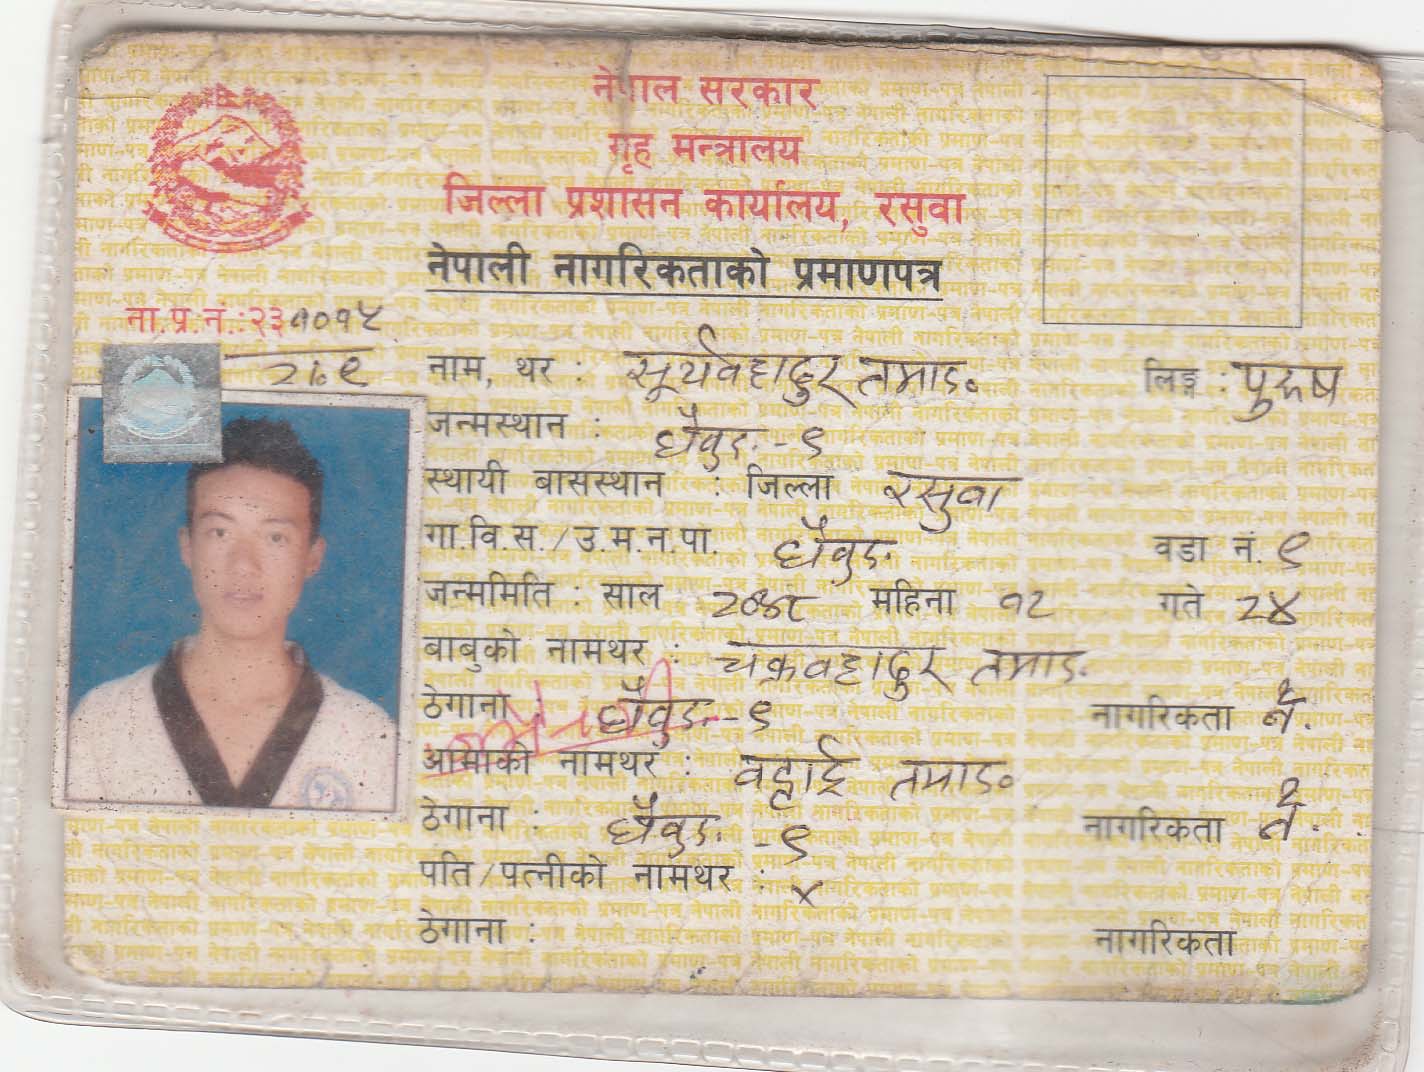 नेपाल सरकार
गृह मन्त्रालय
जिल्ला प्रशासन कार्यालय, रसुवा
नेपाली नागरिकताको प्रमाणपत्र
ना.प्र.नं.:२३१०१५
२।०९
नाम, थर : सूर्यवहादुर तमाङ लिङ्ग : पुरुष
जन्मस्थान : धैवुङ-९
स्थायी बासस्थान : जिल्ला रसुवा
गा.वि.स./उ.म.न.पा. धैवुङ वडा नं. ९
जन्ममिति : साल महिना १२ गते २४
बाबुको नामथर : चक्रवहादुर तमाङ
ठेगाना धैवुङ-९ नागरिकता ने.
आमाको नामथर : तमाङ
ठेगाना : धैवुङ-९ नागरिकता ने.
पति/पत्नीको नामथर : x
ठेगाना : नागरिकता